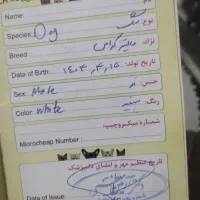 Name: نام:
Species: Dog سگ نوع:
Breed: نژاد:
Date of Birth: ۱۴۰۴,۴,۱۵ تاریخ تولد:
Sex: Male نر جنس:
Color: White سفید رنگ:
شماره میکروچیپ:
Microcheap Number:
تاریخ تنظیم مهر و امضای دامپزشک
Date of Issue: